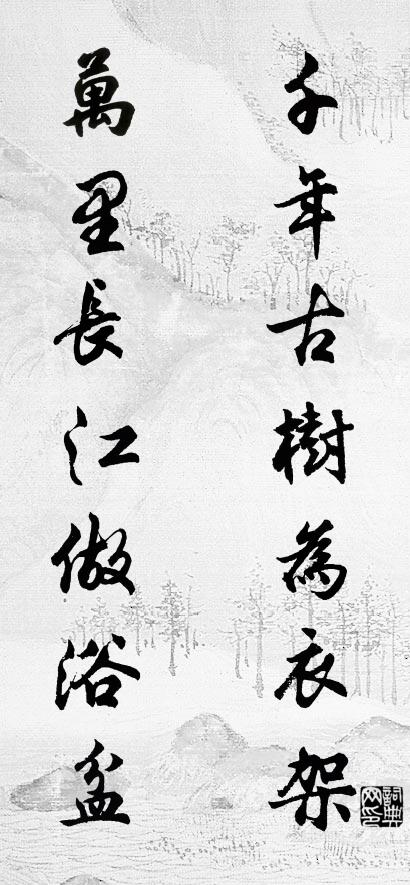 千年古樹為衣架
萬里長江做浴盆
詞典网印